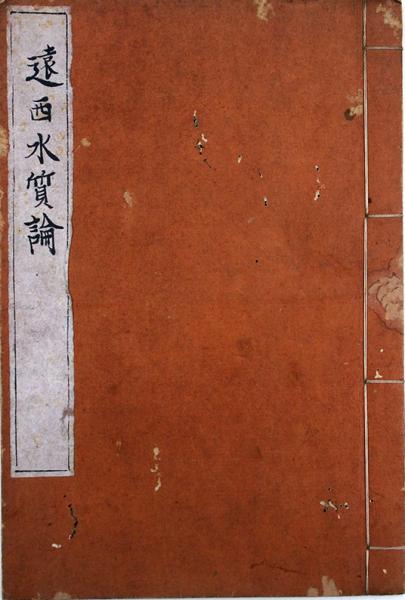 遠西水質論